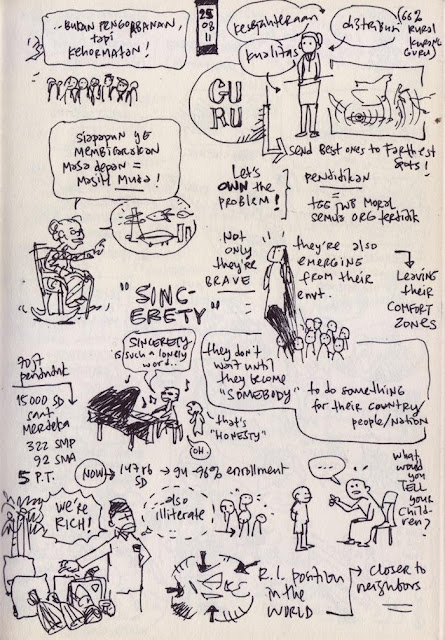 ...BUKAN PENGORBANAN,
tapi
KEHORMATAN!
25
03
11
kesejahteraan
kualitas
distribusi
(66%
RURAL
KURANG
GURU)
GU
RU
SEND BEST ONES TO FARTHEST
SPOTS!
SIAPAPUN YG
MEMBICARAKAN
MASA DEPAN =
MASIH MUDA!
Let's
OWN the
PROBLEM!
pendidikan
=
TGG JWB MORAL
SEMUA ORG TERDIDIK
NOT
ONLY
they're
BRAVE
they're also
EMERGING
FROM their
EMT.
LEAVING
their
COMFORT
ZONES
"SINC-
ERETY"
SINCERETY
is such a lonely
word...
that's
"HONESTY"
OH.
they don't
wait until
they become
"SOMEBODY"
to do something
for their country/
people/nation
15000 SD
saat
merdeka
322 SMP
92 SMA
5 P.T.
NOW
SD
enrollment
WE'RE
RICH!
also
illiterate
...
what
would
you
TELL
your
CHILD-
REN?
R.I. position
in the
WORLD
closer to
neighbors